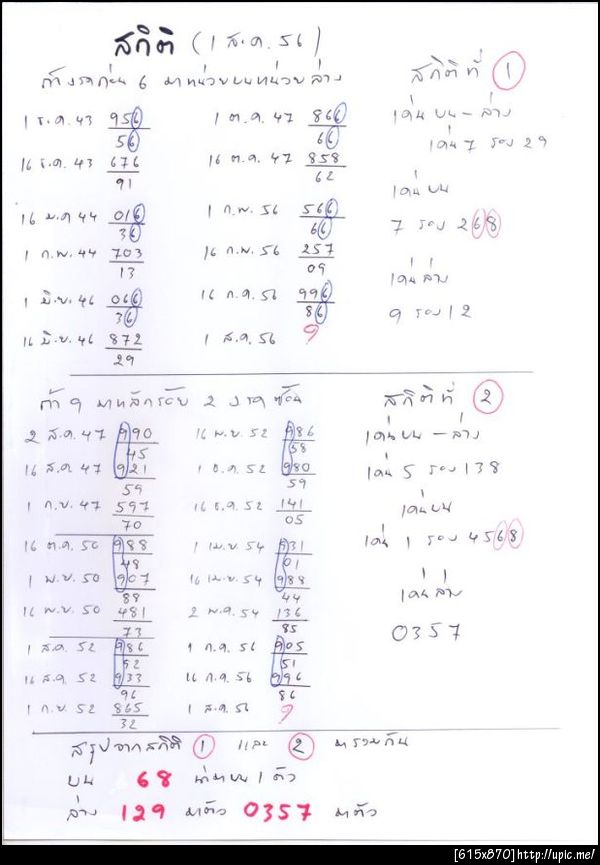 สถิติ (1 ส.ค. 56)
ถ้างวดก่อน 6 มาหน่วยบนหน่วยล่าง
1 ธ.ค. 43 956
56
16 ธ.ค. 43 676
91
16 ม.ค 44 016
36
1 ก.พ. 44 703
13
1 มิ.ย. 46 066
36
16 มิ.ย. 46 872
29
1 ต.ค. 47 866
66
16 ต.ค. 47 858
62
1 ก.พ. 56 566
66
16 ก.พ. 56 257
09
16 ก.ค. 56 996
86
1 ส.ค. 56 ?
สถิติที่ 1
เด่นบน – ล่าง
เด่น 7 รอง 29
เด่นบน
7 รอง 268
เด่นล่าง
9 รอง 12
ถ้า 9 มาหลักร้อย 2 งวดซ้อน
2 ส.ค. 47 990
45
16 ส.ค. 47 921
59
1 ก.ย. 47 597
70
16 ต.ค. 50 988
48
1 พ.ย. 50 907
88
16 พ.ย. 50 481
73
1 ส.ค. 52 986
52
16 ส.ค. 52 933
96
1 ก.ย. 52 865
32
16 พ.ย. 52 986
58
1 ธ.ค. 52 980
59
16 ธ.ค. 52 141
05
1 เม.ย. 54 931
01
16 เม.ย. 54 988
44
2 พ.ค. 54 136
85
1 ก.ค. 56 905
51
16 ก.ค. 56 996
86
1 ส.ค. 56 ?
สถิติที่ 2
เด่นบน – ล่าง
เด่น 5 รอง 138
เด่นบน
เด่น 1 รอง 4568
เด่นล่าง
0357
สรุปจากสถิติ 1 และ 2 มารวมกัน
บน 68 น่ามาบน 1 ตัว
ล่าง 129 มาตัว 0357 มาตัว
[615x870]http://upic.me/